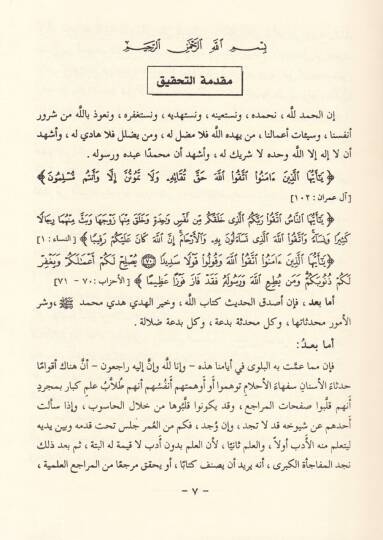 بِسْمِ اللهِ الرَّحْمٰنِ الرَّحِيْمِ
مقدمة التحقيق
إن الحمد للَّه ، نحمده ، ونستعينه ، ونستهديه ، ونستغفره ، ونعوذ باللَّه من شرور
أنفسنا ، وسيئات أعمالنا ، من يهده اللَّه فلا مضل له ، ومن يضلل فلا هادي له ، وأشهد
أن لا إله إلا اللَّه وحده لا شريك له ، وأشهد أن محمدًا عبده ورسوله .
﴿ يَٰٓأَيُّهَا ٱلَّذِينَ ءَامَنُوا۟ ٱتَّقُوا۟ ٱللَّهَ حَقَّ تُقَاتِهِۦ وَلَا تَمُوتُنَّ إِلَّا وَأَنتُم مُّسْلِمُونَ ﴾
[آل عمران : ١٠٢]
﴿ يَٰٓأَيُّهَا ٱلنَّاسُ ٱتَّقُوا۟ رَبَّكُمُ ٱلَّذِى خَلَقَكُم مِّن نَّفْسٍ وَٰحِدَةٍ وَخَلَقَ مِنْهَا زَوْجَهَا وَبَثَّ مِنْهُمَا رِجَالًا
كَثِيرًا وَنِسَآءً ۚ وَٱتَّقُوا۟ ٱللَّهَ ٱلَّذِى تَسَآءَلُونَ بِهِۦ وَٱلْأَرْحَامَ ۚ إِنَّ ٱللَّهَ كَانَ عَلَيْكُمْ رَقِيبًا ﴾ [النساء : ١]
﴿ يَٰٓأَيُّهَا ٱلَّذِينَ ءَامَنُوا۟ ٱتَّقُوا۟ ٱللَّهَ وَقُولُوا۟ قَوْلًا سَدِيدًا ۝٧٠ يُصْلِحْ لَكُمْ أَعْمَٰلَكُمْ وَيَغْفِرْ
لَكُمْ ذُنُوبَكُمْ ۗ وَمَن يُطِعِ ٱللَّهَ وَرَسُولَهُۥ فَقَدْ فَازَ فَوْزًا عَظِيمًا ﴾ [الأحزاب : ٧٠ - ٧١]
أما بعد ، فإن أصدق الحديث كتاب اللَّه ، وخير الهدي هدي محمد ﷺ ، وشر
الأمور محدثاتها ، وكل محدثة بدعة ، وكل بدعة ضلالة .
أما بعـد :
فإن مما عمَّت به البلوى في أيامنا هذه – وإنا للَّه وإنَّ إليه راجعون – أنَّ هناك أقوامًا
حدثاءَ الأسنانِ سفهاءَ الأحلامِ توهموا أو أوهمتهم أنفُسُهم أنهم طُلاَّبُ علمٍ كبار بمجردِ
أنهم قلَّبوا صفحات المراجع ، وقد يكونوا قلَّبُوها من خلال الحاسوب ، وإذا سألت
أحدهم عن شيوخه قد لا تجد ، وإن وُجد ، فكم من العُمر جلس تحت قدمه وبين يديه
ليتعلم منه الأدب أولاً ، والعلم ثانيًا ، لأن العلم بدون أدب لا قيمة له البتة ، ثم بعد ذلك
نجد المفاجأة الكبرى ، أنه يريد أن يصنف كتابًا ، أو يحقق مرجعًا من المراجع العلمية ،
– ٧ –